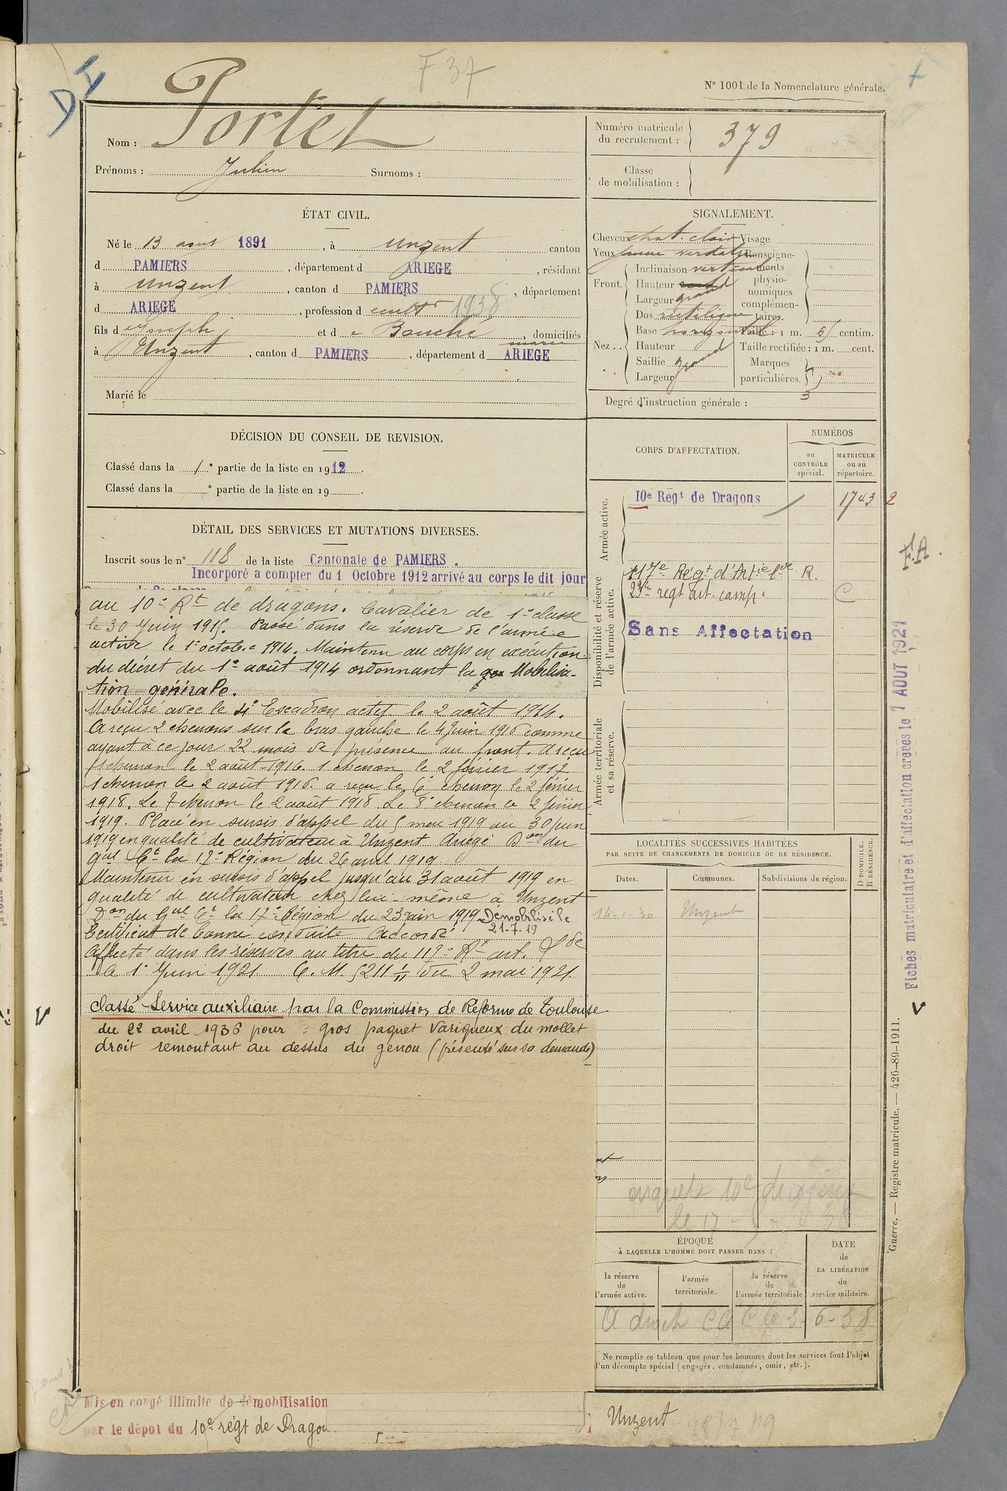 F 37
DI
N° 1001 de la Nomenclature générale.
Nom : Portet
Prénoms : Julien Surnoms :
Numéro matricule du recrutement : 379
Classe de mobilisation :
ÉTAT CIVIL.
Né le 13 aout 1891, à Unzent canton
d PAMIERS, département d ARIEGE, résidant
à Unzent, canton d PAMIERS, département
d ARIEGE, profession d cultr 1938
fils d e Joseph et d e Bauche, domiciliés
à Unzent, canton d PAMIERS, département d ARIEGE
Marié le
SIGNALEMENT.
Cheveux chat. clair Visage
Yeux jaune verdatre Renseigne-
Front. Inclinaison verticale ments
Hauteur physio-
Largeur grand nomiques
complémen-
Nez. Dos rectiligne taires.
Base horizontale Taille : 1 m. 61 centim.
Hauteur Taille rectifiée : 1 m. cent.
Saillie grand Marques
Largeur particulières.
Degré d'instruction générale : 3
DÉCISION DU CONSEIL DE REVISION.
Classé dans la 1e partie de la liste en 1912.
Classé dans la e partie de la liste en 19 .
DÉTAIL DES SERVICES ET MUTATIONS DIVERSES.
Inscrit sous le n° 118 de la liste Cantonale de PAMIERS.
Incorporé a compter du 1 Octobre 1912 arrivé au corps le dit jour
au 10e Rt de dragons. Cavalier de 1e classe
le 30 Juin 1915. Passé dans la réserve de l'armée
active le 1er octobre 1914. Maintenu au corps en exécution
du décret du 1er août 1914 ordonnant la Mobilisa-
tion générale.
Mobilisé avec le 4e Escadron actif le 2 août 1914.
A reçu 2 chevrons sur le bras gauche le 4 Juin 1916 comme
ayant à ce jour 22 mois de présence au front. A reçu
1 chevron le 2 août 1916. 1 chevron le 2 février 1917
1 chevron le 2 août 1916. a reçu le 6e chevron le 2 février
1918. Le 7 chevron le 2 août 1918. Le 8e chevron le 2 février
1919. Placé en sursis d'appel du 5 mai 1919 au 30 Juin
1919 en qualité de cultivateur à Unzent Ariège Don du
Gal Ct la 12e Région du 26 avril 1919.
Maintenu en sursis d'appel jusqu'au 31 août 1919 en
qualité de cultivateur chez lui même à Unzent
Don du Gal Ct la 17e Région du 23 juin 1919 Démobilisé le
21-7-19
Certificat de bonne conduite accordé
Affecté dans les réserves au titre du 117e Rt art.
le 1er Juin 1921 C. M. 5211 1/11 du 2 mai 1921.
Classé Service auxiliaire par la Commission de Réforme de Toulouse
du 22 avril 1936 pour : gros paquet variqueux du mollet
droit remontant au dessus du genou (présenté sur sa demande)
CORPS D'AFFECTATION.
NUMÉROS
au CONTRÔLE spécial.
MATRICULE ou au répertoire.
Armée active.
10e Régt de Dragons 1743 2
Disponibilité et réserve de l'armée active.
117e Régt d'Artie Lde R.
23e regt art. camp. C
Sans Affectation
Armée territoriale et sa réserve.
F.A.
Fiches matriculaire et d'affectation créées le 7 AOUT 1921
LOCALITÉS SUCCESSIVES HABITÉES
PAR SUITE DE CHANGEMENTS DE DOMICILE OU DE RÉSIDENCE.
Dates. Communes. Subdivisions de région. D DOMICILE. R RÉSIDENCE.
14-1-30 Unzent
ÉPOQUE
À LAQUELLE L'HOMME DOIT PASSER DANS :
la réserve de l'armée active.
l'armée territoriale.
la réserve de l'armée territoriale
DATE de LA LIBÉRATION du service militaire.
Ne remplir ce tableau que pour les hommes dont les services font l'objet
d'un décompte spécial (engagés, condamnés, omis, etc.).
Guerre. — Registre matricule. — 426-89-1911.
Mis en congé illimité de démobilisation
par le dépot du 10e régt de Dragons
Unzent